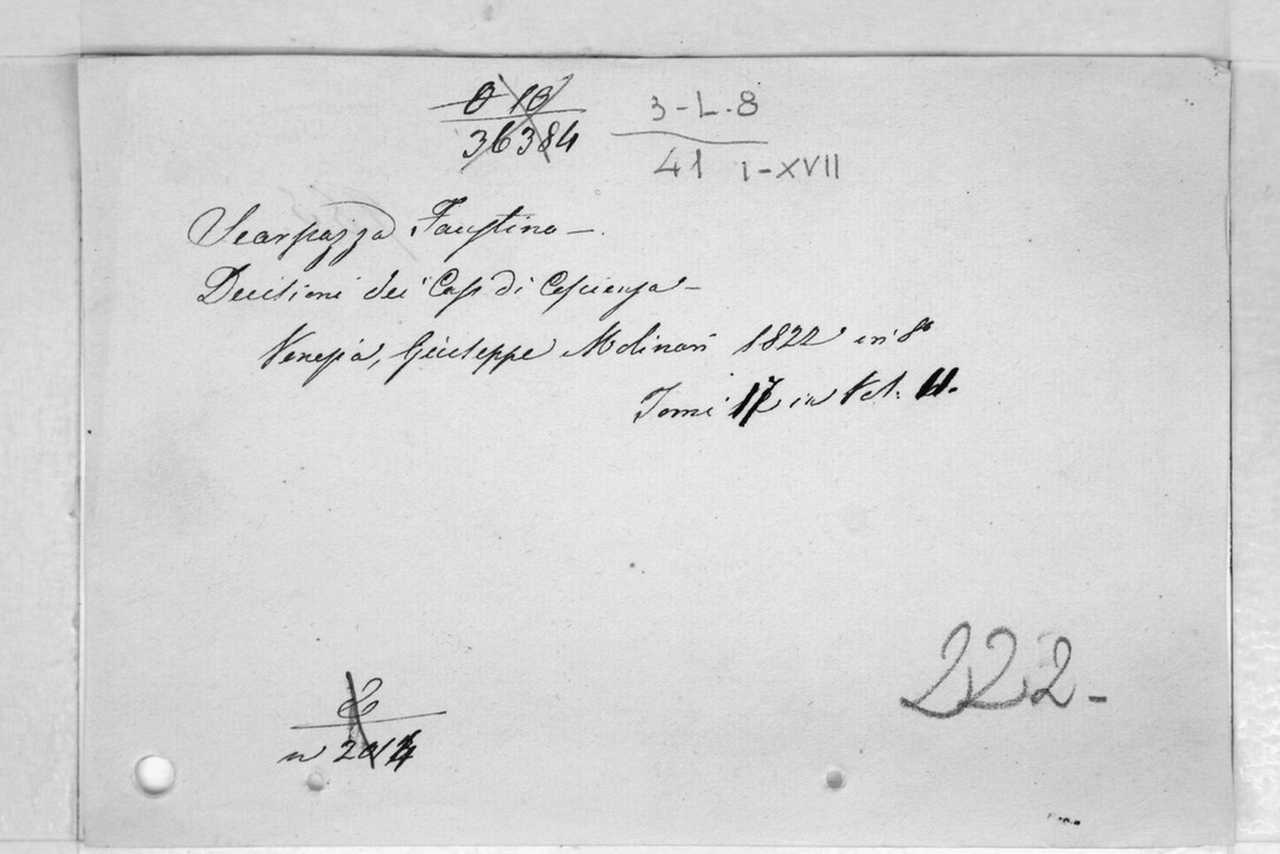 3-L.8
36384
41 I-XVII
Scarpazza Faustino —.
Decisioni dei Casi di Coscienza —
Venezia, Giuseppe Molinari 1822 in 8°
Tomi 17 in Vol.
222-